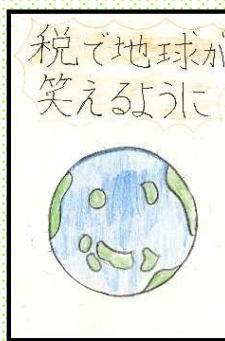 税で地球が
笑えるように